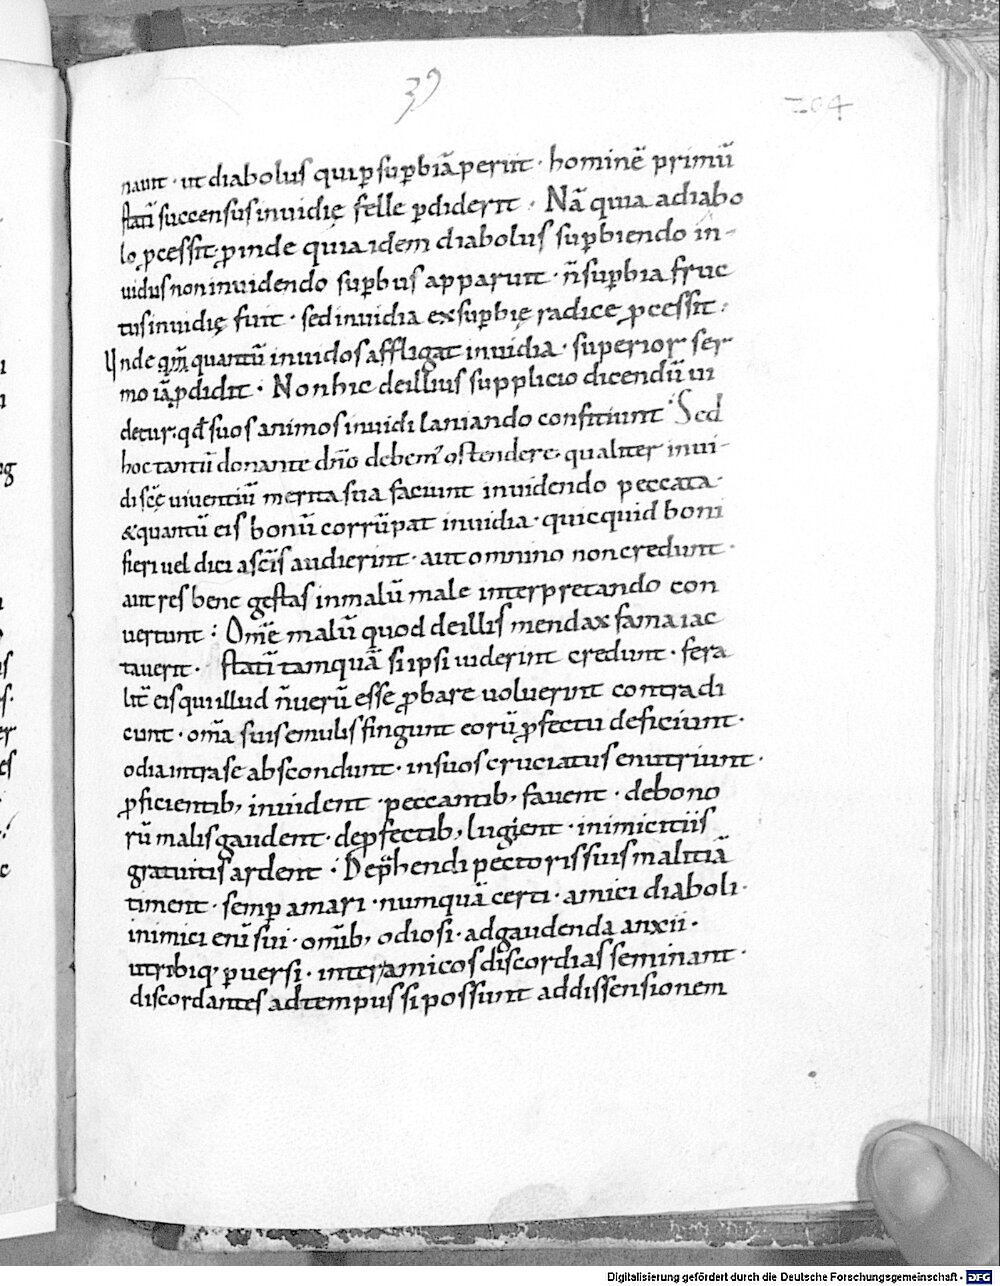 39
204
nauit · ut diabolus qui p̱ sup̱biā periit · hominē primū
statū succensus inuidię felle p̱diderit · Nā quia a diabo
lo ꝓcessit ꝓinde quia idem diabolus sup̱biendo in-
uidus non inuidendo sup̱bus apparuit · n̄ sup̱bia fruc
tus inuidię fuit · sed inuidia ex sup̱bię radice ꝓcessit :
Unde qm̄ quantū inuidos affligat inuidia · superior ser
mo iā p̱didit · Non hic de illius supplicio dicendū ui
detur · qđ suos animos inuidi laniando conficiunt · Sed
hoc tantū donante dn̄o debem᾽ ostendere · qualiter inui-
di sc̄ę uiuentiū merita sua faciunt inuidendo peccata ·
& quantū eis bonū corrūpat inuidia · quicquid boni
fieri uel dici a sc̄is audierint · aut omnino non credunt ·
aut res bene gestas in malū male interpretando con
uertunt : Om̄e malū quod de illis mendax fama iac
tauerit · statī tamquā si ipsi uiderint credunt · fera
lit̄ eis qui illud n̄ uerū esse ꝓbare uoluerint contradi
cunt · om̄a suis emulis fingunt eorū ꝓfectu deficiunt ·
odia intra se abscondunt · in suos cruciatus enutriunt ·
ꝓficientib; inuident · peccantib; fauent · de bono
rū malis gaudent · de ꝓfectib; lugent · inimicitiis
gratuitis ardent : Dep̄hendi pectoris sui malitiā
timent · semp̱ amari · numquā certi · amici diaboli ·
inimici enī sui · om̄ib; odiosi · ad gaudenda anxii ·
utribiq; p̱uersi · inter amicos discordias seminant ·
discordantes ad tempus si possunt ad dissensionem
Digitalisierung gefördert durch die Deutsche Forschungsgemeinschaft - DFG